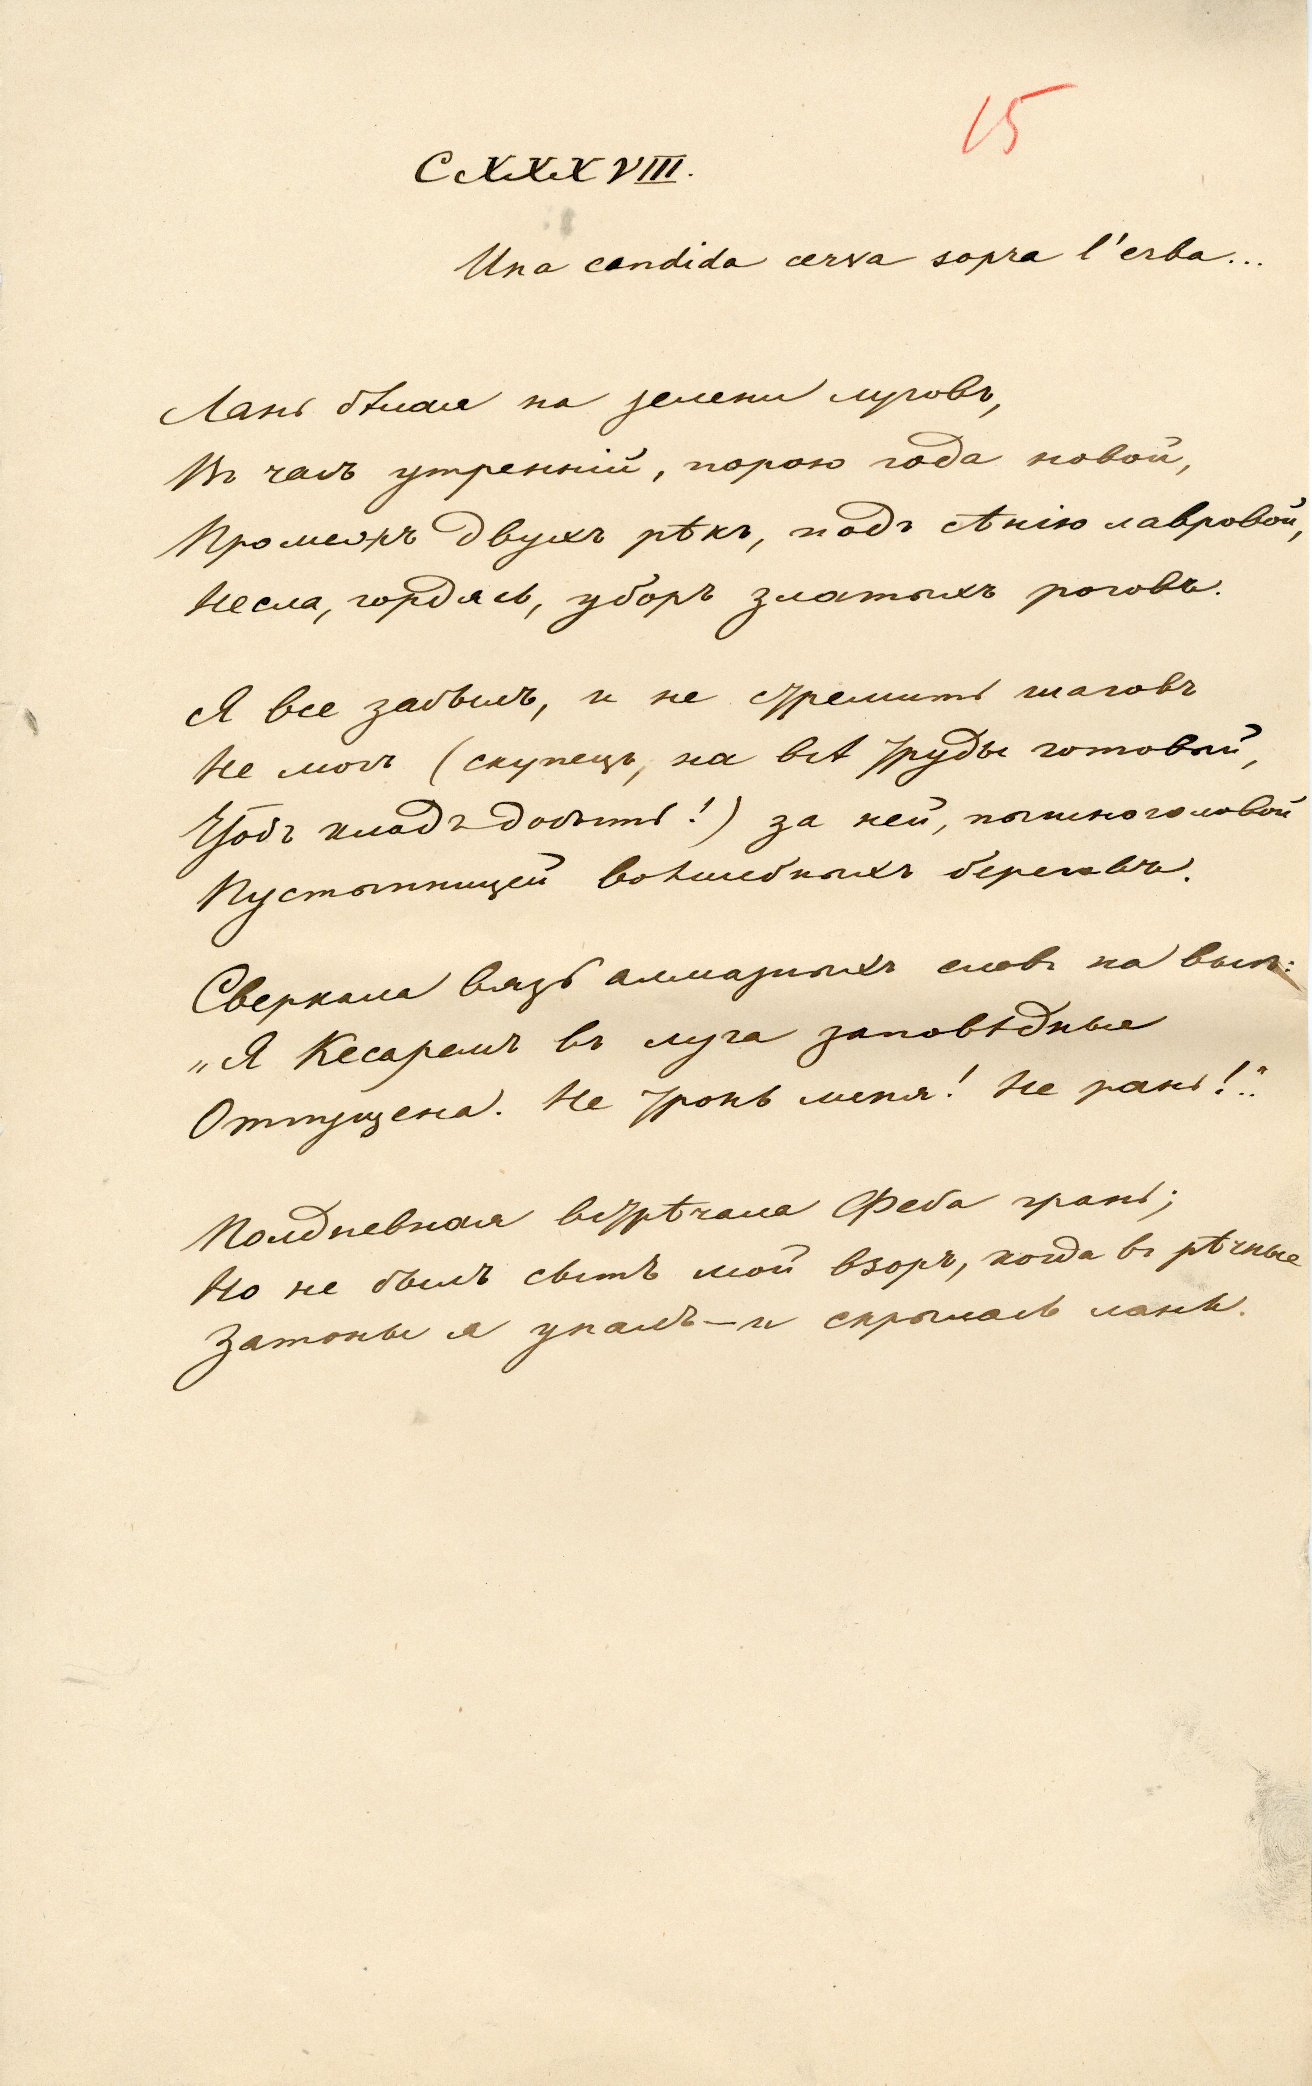 15
CXXXVIII.
Una candida cerva sopra l'erba...
Лань бѣлая на зелени луговъ,
Въ часъ утренній, порою года новой,
Промежъ двухъ рѣкъ, подъ сѣнію лавровой,
Несла, гордясь, уборъ златыхъ роговъ.
Я все забылъ, и не стремить шаговъ
Не могъ (скупецъ, на всѣ труды готовый,
Чтобъ кладъ добыть!) за ней, пышноголовой
Пустынницей волшебныхъ береговъ.
Сверкала вязь алмазныхъ словъ на выѣ:
„Я Кесаремъ въ луга заповѣдные
Отпущена. Не тронь меня! Не рань!.."
Полдневная встрѣчала Феба грань;
Но не былъ сытъ мой взоръ, когда въ рѣчные
Затоны я упалъ—и скрылась лань.